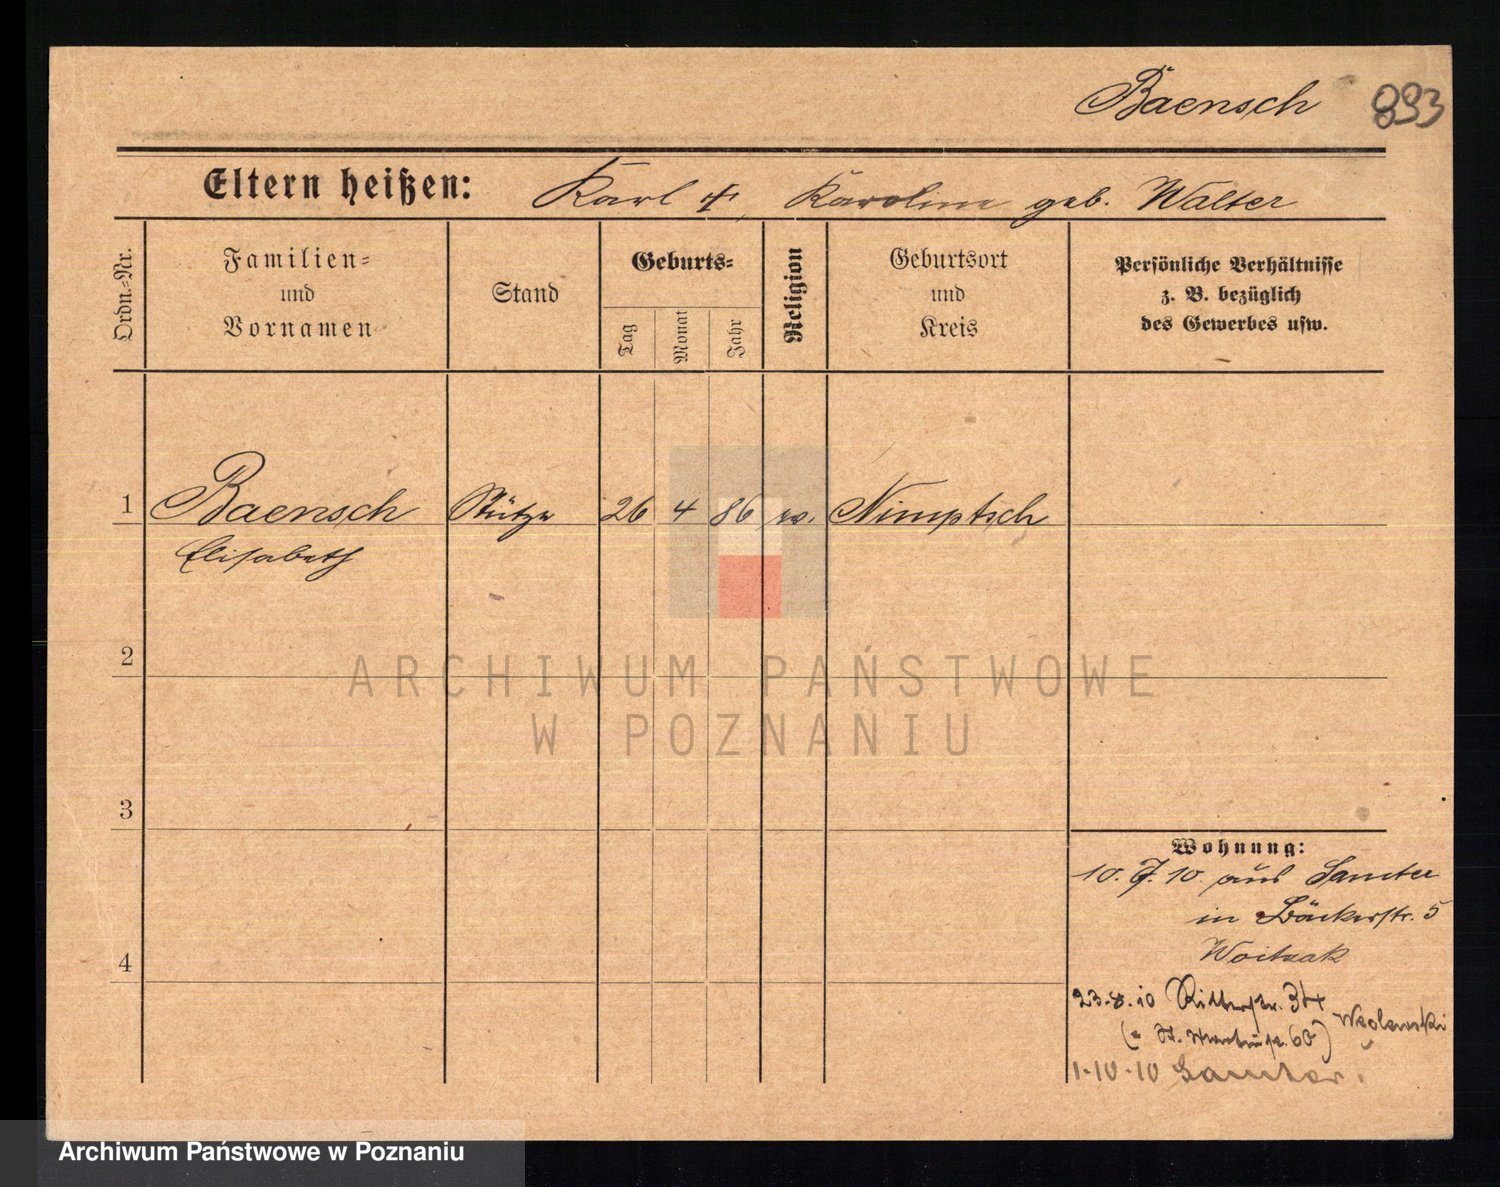 Baensch 893
Eltern heißen: Karl †, Karoline geb. Walter
Ordn.-Nr.
Familien-
und
Vornamen
Stand
Geburts-
Tag
Monat
Jahr
Religion
Geburtsort
und
Kreis
Persönliche Verhältnisse
z. B. bezüglich
des Gewerbes usw.
1 Baensch Stütze 26 4 86 ev. Nimptsch
Elisabeth
2
3
4
Wohnung:
10. 7. 10. aus Samter
in Bäckerstr. 5
Woitzak
23.8.10 Ritterstr. 34
(= St. Martinstr. 60)
1.10.10 Samter.
ARCHIWUM PAŃSTWOWE
W POZNANIU
Archiwum Państwowe w Poznaniu